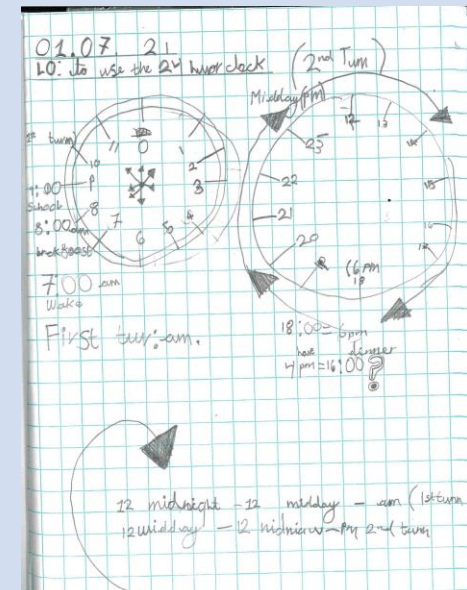 01.07.21
LO: to use the 24 hour clock
(2nd Turn)
Midday (pm)
1st turn)
0
1
2
3
4
5
6
7
8
9
10
11
9:00
School
8:00am
breakfast
7:00 am
Wake
First tur:am.
12
13
23
22
21
20
(6 pm
18
18:00 = 6pm
dinner
4 pm = 16:00 ?
12 midnight - 12 midday - am (1st turn
12 midday - 12 - pm 2nd turn